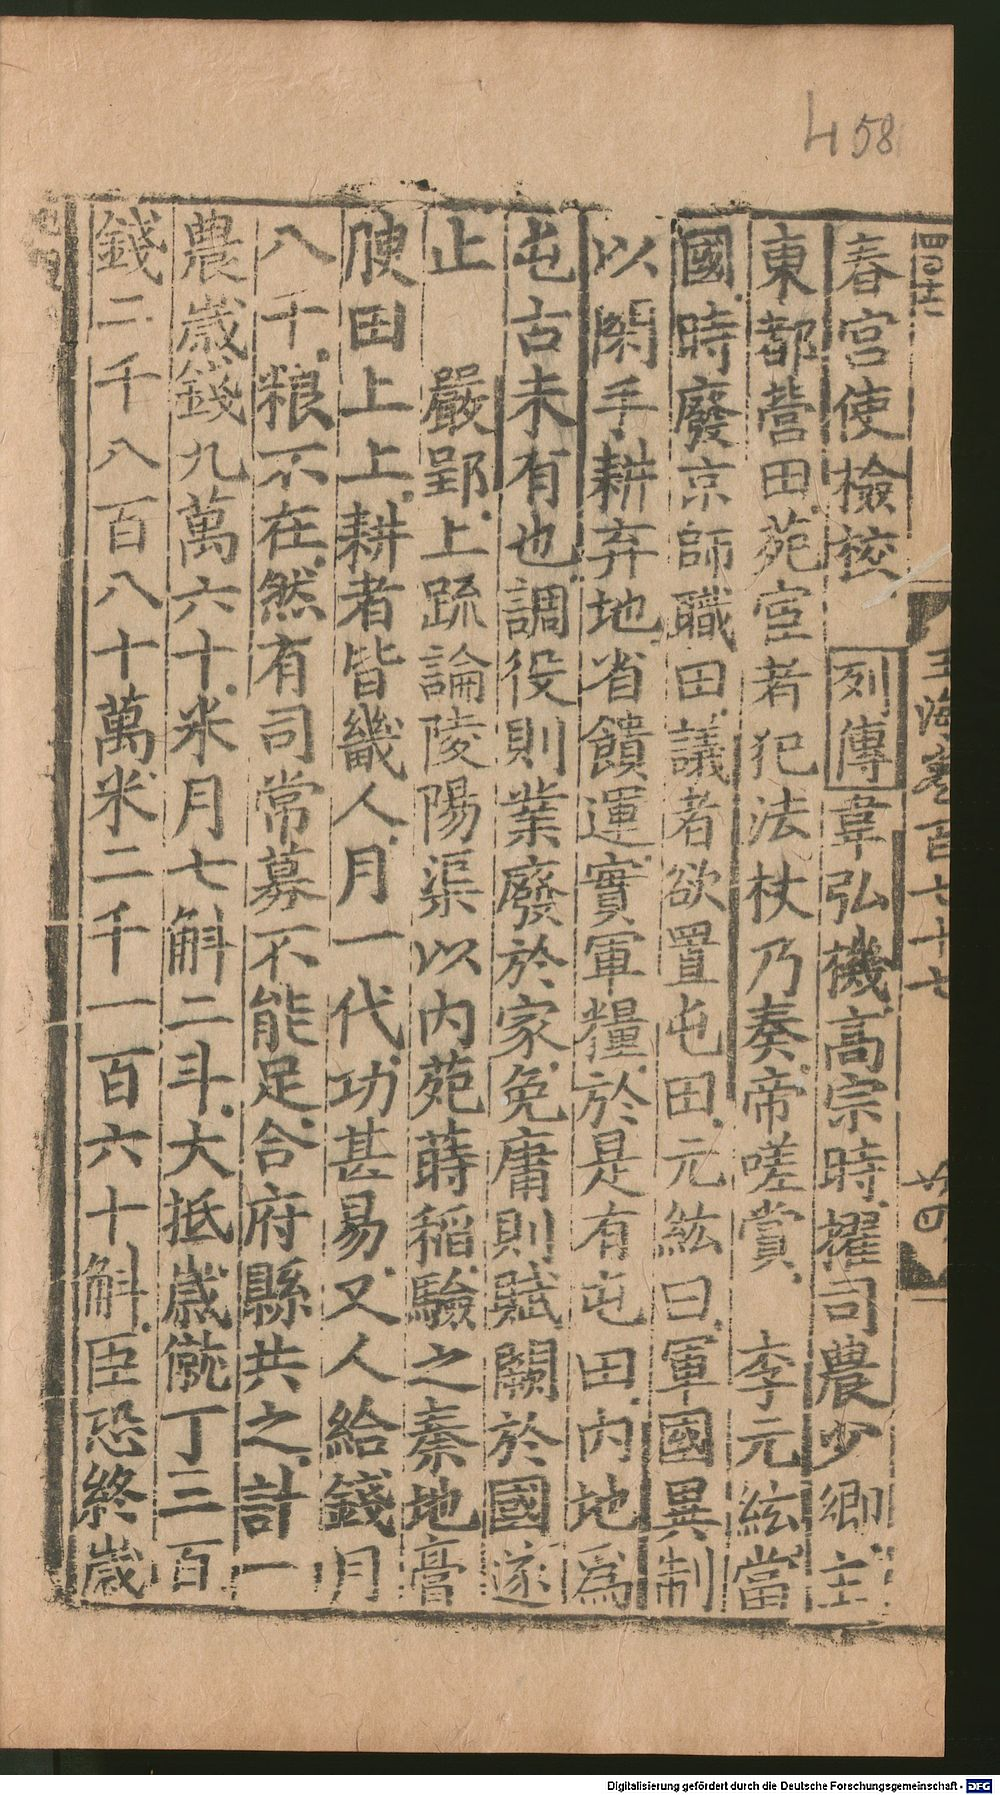 458
春宫使檢挍 列傳韋弘機高宗時擢司農少卿主
東都營田苑宦者犯法杖乃奏帝嗟賞 李元紘當
國時廢京師職田議者欲置屯田元紘曰軍國異制
以閑手耕弃地省饋運實軍糧於是有屯田内地爲
屯古未有也調役則業廢於家免庸則賦闕於國遂
止 嚴郢上䟽論陵陽渠以内苑蒔稻驗之秦地膏
腴田上上耕者皆畿人月一代功甚易又人給錢月
八千粮不在然有司常募不能足合府縣共之計一
農歲錢九萬六十米月七斛二斗大抵歲僦丁三百
錢二千八百八十萬米二千一百六十斛臣恐終歲
玉海卷百六十七
Digitalisierung gefördert durch die Deutsche Forschungsgemeinschaft - DFG